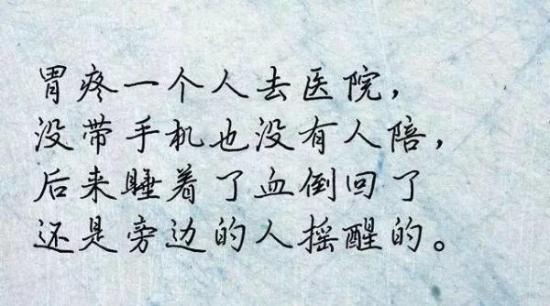 胃疼一个人去医院，
没带手机也没有人陪，
后来睡着了血倒回了
还是旁边的人摇醒的。